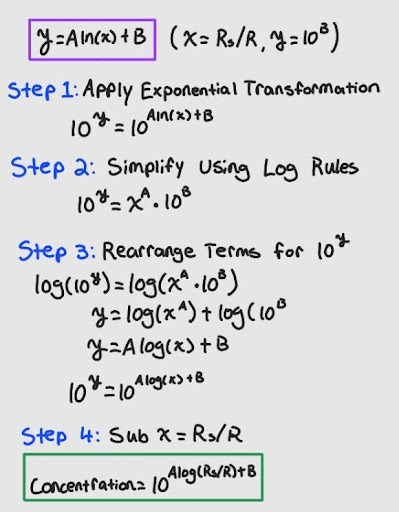 y=Aln(x)+B (x=Rs/R, y=10^B)
Step 1: Apply Exponential Transformation
10^y=10^Aln(x)+B
Step 2: Simplify Using Log Rules
10^y=x^A·10^B
Step 3: Rearrange Terms for 10^y
log(10^y)=log(x^A·10^B)
y=log(x^A)+log(10^B
y=Alog(x)+B
10^y=10^Alog(x)+B
Step 4: Sub x=Rs/R
Concentration=10^Alog(Rs/R)+B